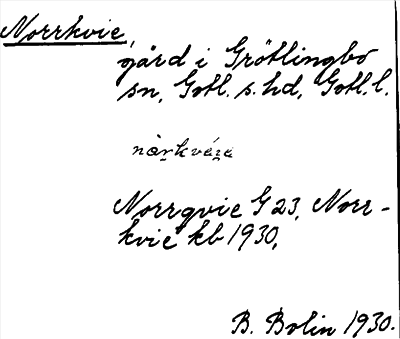 Norrkvie,
gård i Grötlingbo
sn, Gotl. s. hd, Gotl. l.
Norrgvie G 23, Norr-
kvie kb 1930,
B. Bolin 1930.